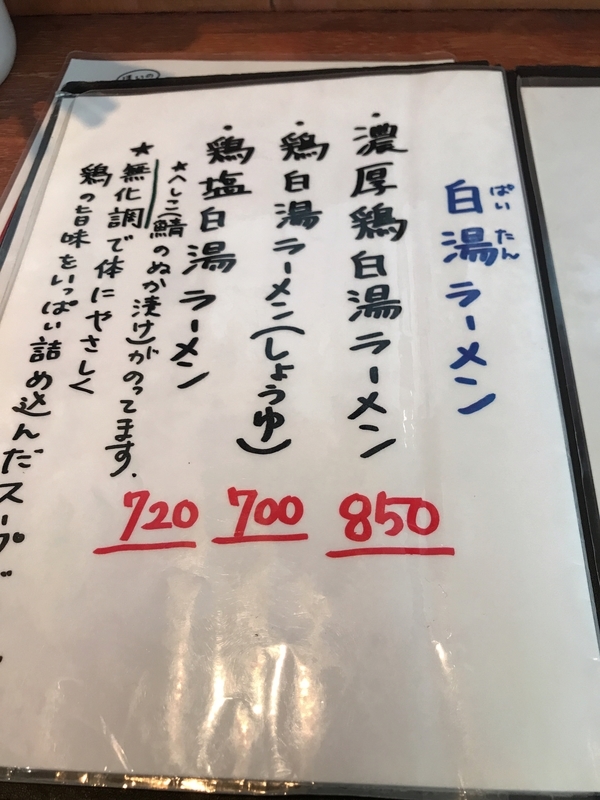 白湯ラーメン
ぱいたん
・濃厚鶏白湯ラーメン
850
・鶏白湯ラーメン(しょうゆ)
700
・鶏塩白湯ラーメン
720
★へしこ(鯖のぬか漬け)がのってます.
★無化調で体にやさしく
鶏の旨味をいっぱい詰め込んだスープ